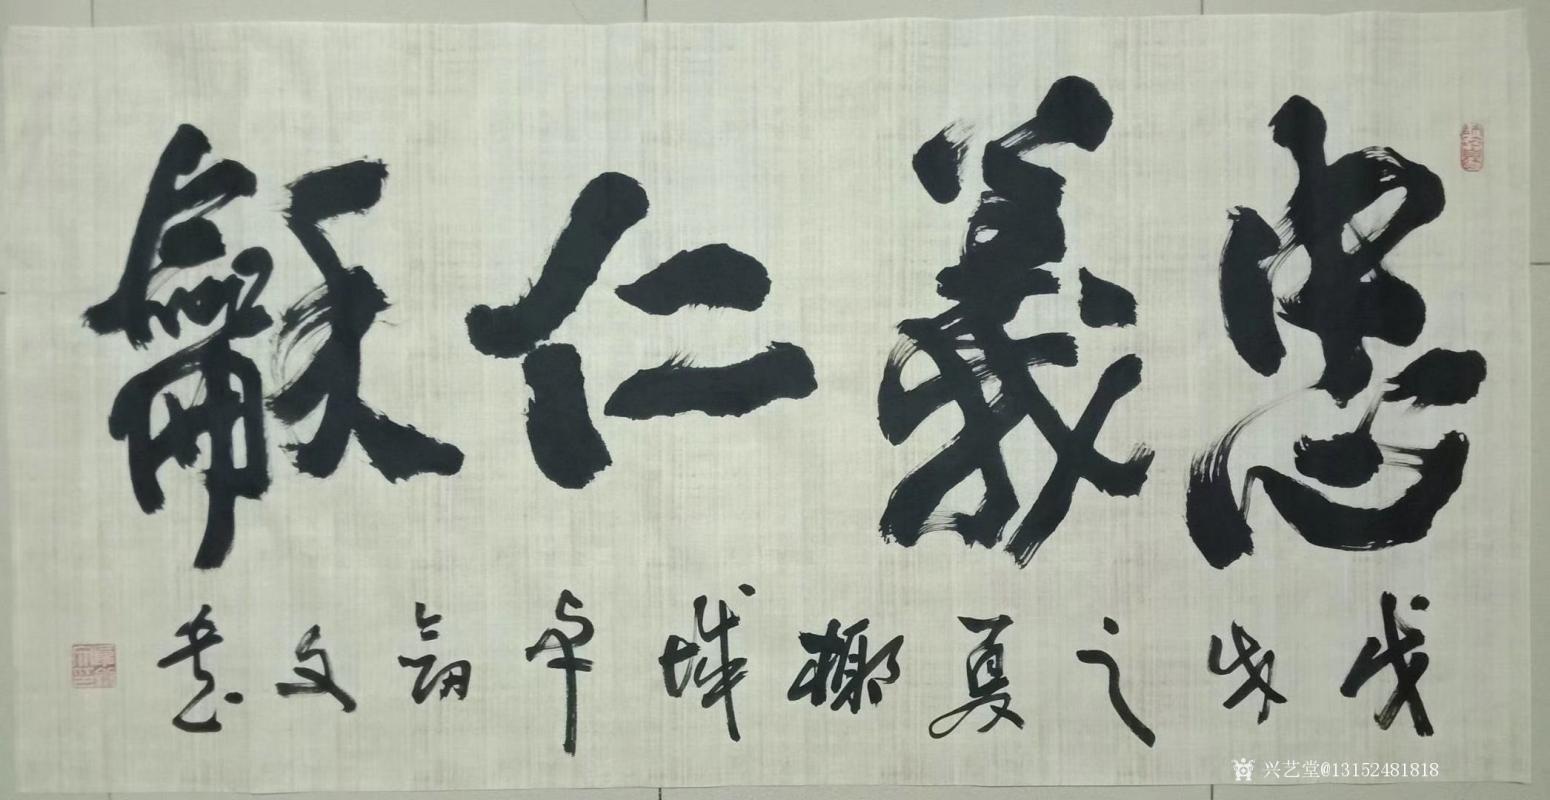 忠義仁龢
戊戌之夏榔城卓翕文書
兴艺堂@13152481818